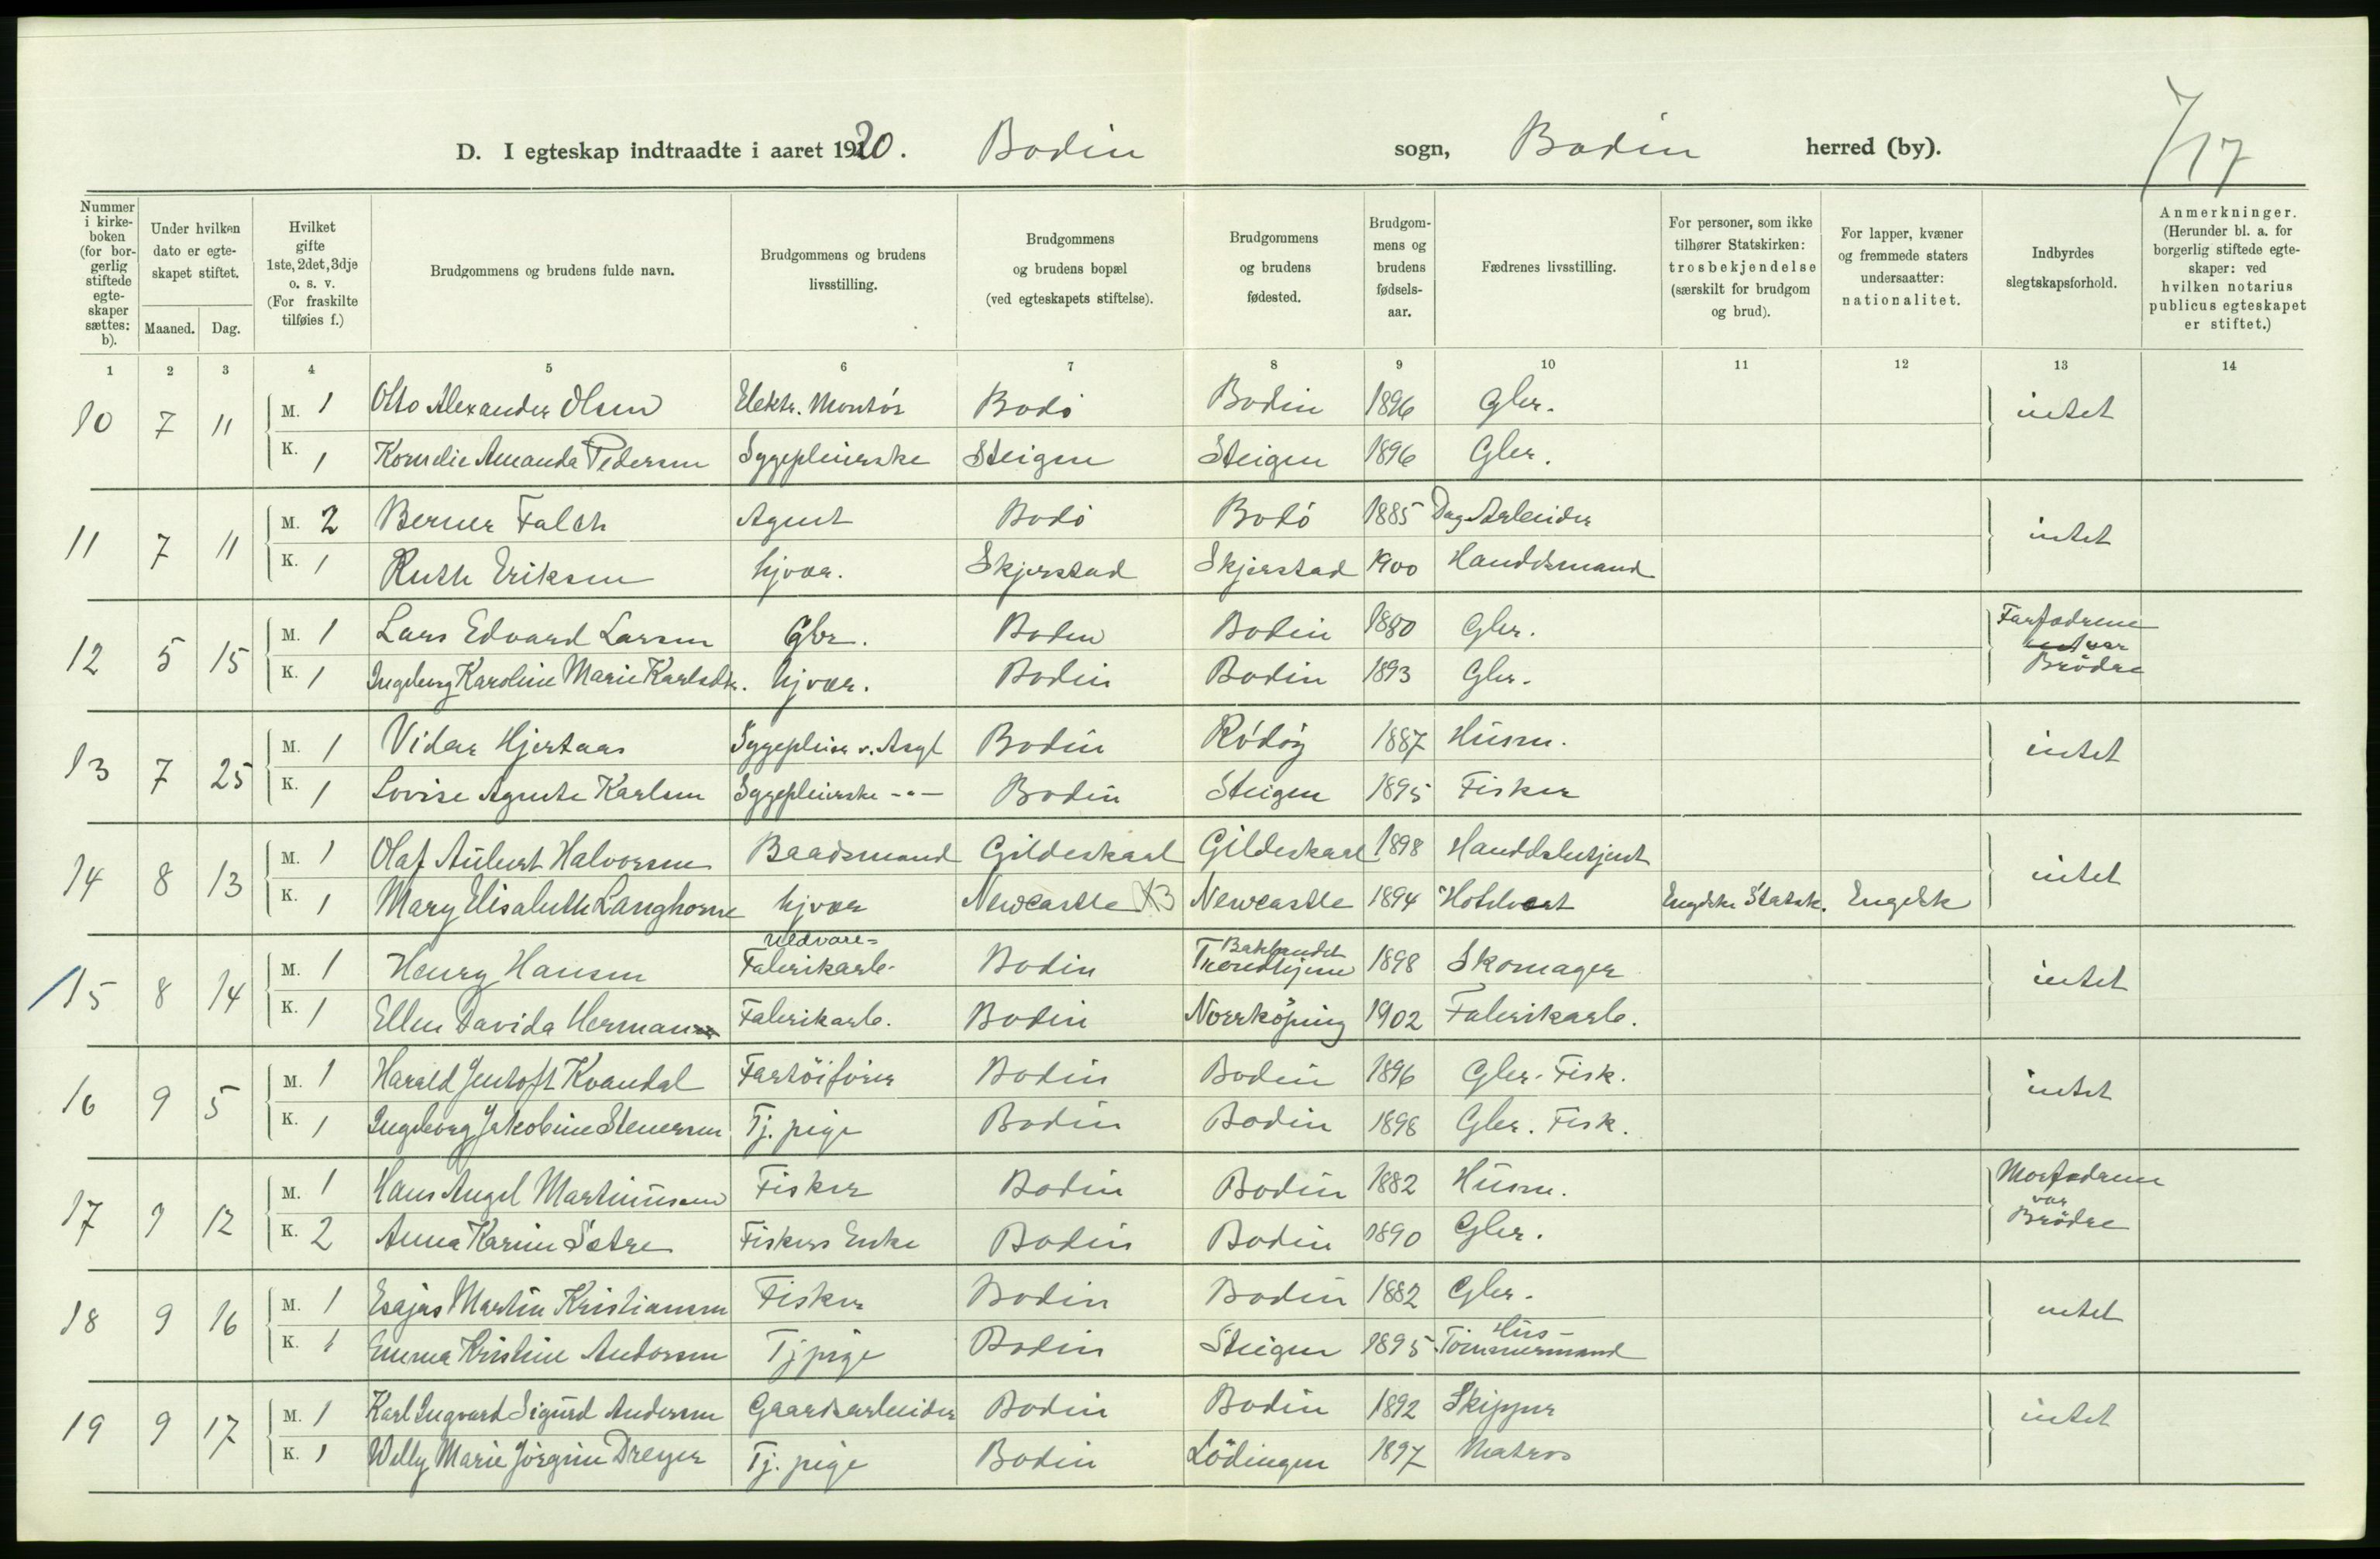 7/17
D. I egteskap indtraadte i aaret 1920. Bodin sogn, Bodin herred (by).
Nummer i kirke-boken (for bor-gerlig stiftede egte-skaper sættes: b).
Under hvilken dato er egte-skapet stiftet.
Maaned. Dag.
Hvilket gifte 1ste, 2det, 3dje o. s. v. (For fraskilte tilføies f.)
Brudgommens og brudens fulde navn.
Brudgommens og brudens livsstilling.
Brudgommens og brudens bopæl (ved egteskapets stiftelse).
Brudgommens og brudens fødested.
Brudgom-mens og brudens fødsels-aar.
Fædrenes livsstilling.
For personer, som ikke tilhører Statskirken: trosbekjendelse (særskilt for brudgom og brud).
For lapper, kvæner og fremmede staters undersaatter: nationalitet.
Indbyrdes slegtskapsforhold.
Anmerkninger. (Herunder bl. a. for borgerlig stiftede egte-skaper: ved hvilken notarius publicus egteskapet er stiftet.)
1 2 3 4 5 6 7 8 9 10 11 12 13 14
10 7 11 M. 1 Otto Alexander Olsen Elektr. Montör Bodö Bodin 1896 Gbr. intet
K. 1 Kornelie Amanda Pedersen Sygepleierske Steigen Steigen 1896 Gbr.
11 7 11 M. 2 Berner Falch Agent Bodö Bodö 1885 Dag Arbeider intet
K. 1 Ruth Eriksen hjvær. Skjerstad Skjerstad 1900 Handelsmand
12 5 15 M. 1 Lars Edvard Larsen Gbr. Bodin Bodin 1880 Gbr. Farfædrene var Brödre
K. 1 Ingeborg Karoline Marie Karlsdtr. hjvær. Bodin Bodin 1893 Gbr.
13 7 25 M. 1 Vidar Hjertaas Sygepleier v. Asyl Bodin Rödöy 1887 Husm. intet
K. 1 Lovise Agnete Karlsen Sygepleierske -"- Bodin Steigen 1895 Fisker
14 8 13 M. 1 Olaf Aubert Halvorsen Baadsmand Gildeskaal Gildeskaal 1898 Handelsbetjent intet
K. 1 Mary Elisabeth Langhorne hjvær Newcastle Newcastle 1894 Hotelvert Engelske Statsk. Engelsk
15 8 14 M. 1 Henry Hansen Uldvare-Fabrikarb. Bodin Bakhandet Trondhjem 1898 Skomager intet
K. 1 Ellen Davida Herman Fabrikarb. Bodin Norrköping 1902 Fabrikarb.
16 9 5 M. 1 Harald Jentoft Kvandal Fartöiförer Bodin Bodin 1896 Gbr. Fisk. intet
K. 1 Ingeborg Jakobine Stenersen Tj. pige Bodin Bodin 1898 Gbr. Fisk.
17 9 12 M. 1 Hans Angel Martinussen Fisker Bodin Bodin 1882 Husm. Morfædrene var Brödre
K. 2 Anna Karine Sætre Fiskers Enke Bodin Bodin 1890 Gbr.
18 9 16 M. 1 Esajas Martin Kristiansen Fisker Bodin Bodin 1882 Gbr. intet
K. 1 Emma Kristine Andorsen Tj pige Bodin Steigen 1895 Hus-Tömmermand
19 9 17 M. 1 Karl Ingvard Sigurd Andersen Gaardsarbeider Bodin Bodin 1892 Skipper intet
K. 1 Welly Marie Jörgine Dreyer Tj. pige Bodin Lödingen 1897 Matros